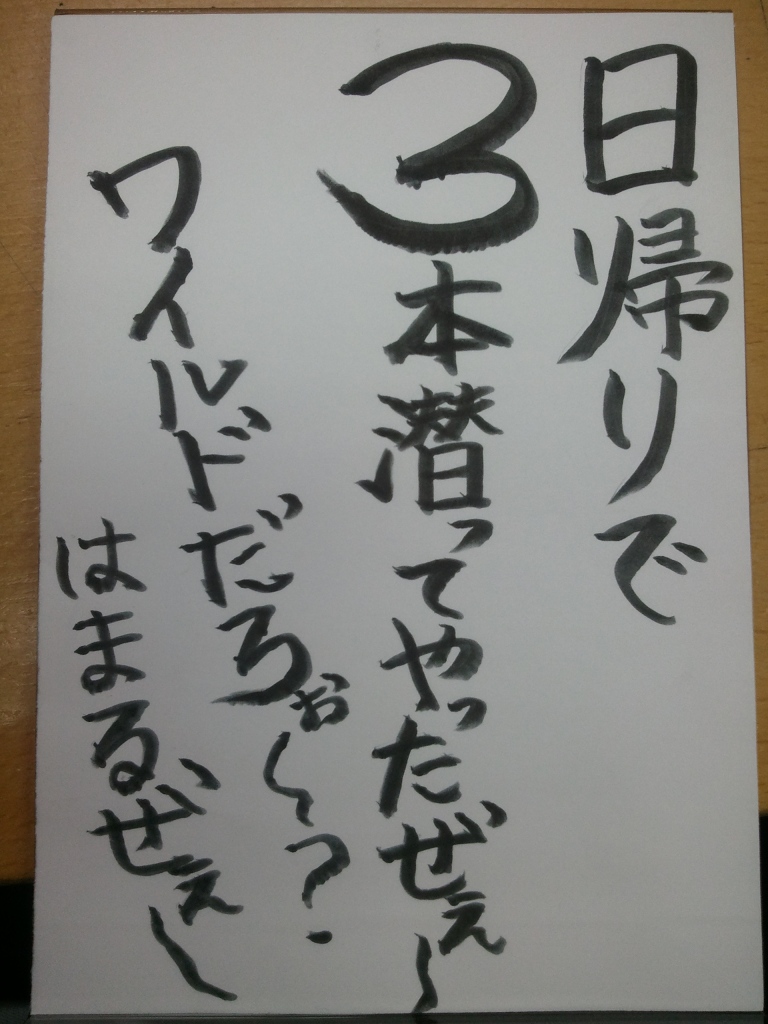 日帰りで
3本潜ってやったぜぇ〜
ワイルドだろぉ〜?
はまるぜぇ〜